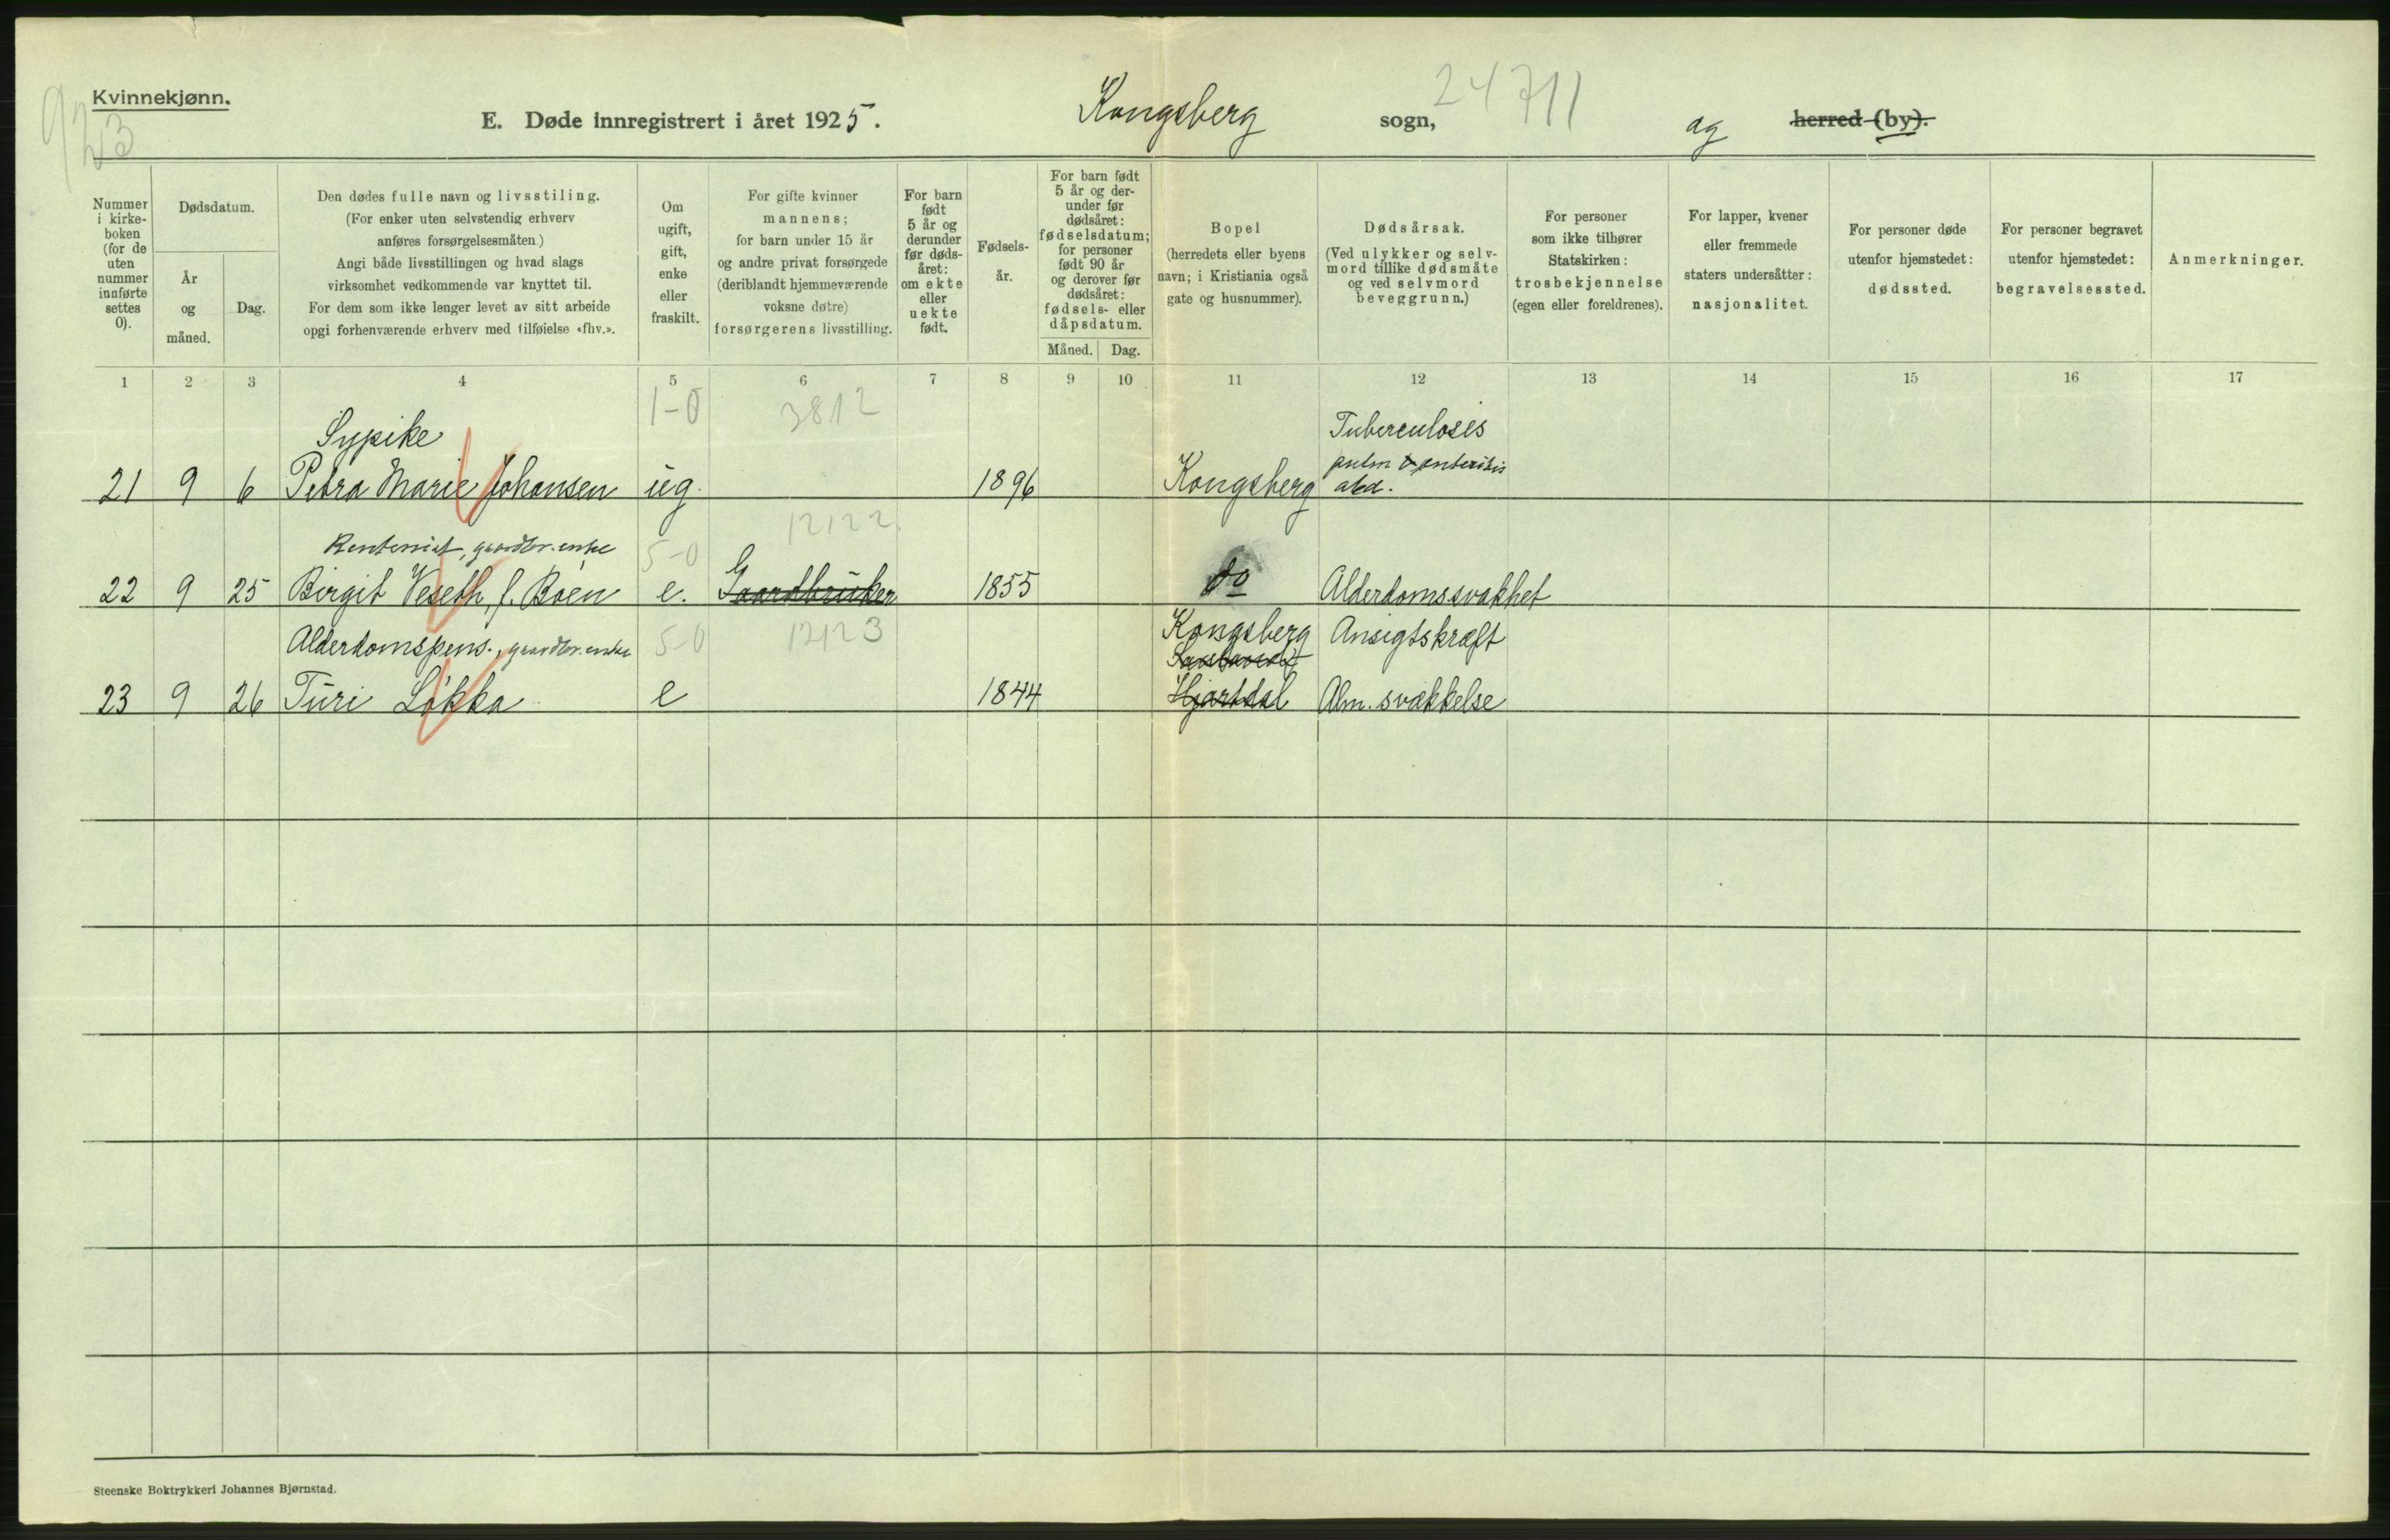 Kvinnekjønn.
923
E. Døde innregistrert i året 1925.
Kongsberg sogn,
24711
og herred (by).
Nummer i kirke-boken (for de uten nummer innførte settes 0).
Dødsdatum.
År og måned.
Dag.
Den dødes fulle navn og livsstiling.
(For enker uten selvstendig erhverv
anføres forsørgelsesmåten.)
Angi både livsstillingen og hvad slags
virksomhet vedkommende var knyttet til.
For dem som ikke lenger levet av sitt arbeide
opgi forhenværende erhverv med tilføielse «fhv.».
Om
ugift,
gift,
enke
eller
fraskilt.
For gifte kvinner
mannens;
for barn under 15 år
og andre privat forsørgede
(deriblandt hjemmeværende
voksne døtre)
forsørgerens livsstilling.
For barn
født
5 år og
derunder
før døds-
året:
om ekte
eller
uekte
født.
Fødsels-
år.
For barn født
5 år og der-
under før
dødsåret:
fødselsdatum;
for personer
født 90 år
og derover før
dødsåret:
fødsels- eller
dåpsdatum.
Måned. Dag.
Bopel
(herredets eller byens
navn; i Kristiania også
gate og husnummer).
Dødsårsak.
(Ved ulykker og selv-
mord tillike dødsmåte
og ved selvmord
beveggrunn.)
For personer
som ikke tilhører
Statskirken:
trosbekjennelse
(egen eller foreldrenes).
For lapper, kvener
eller fremmede
staters undersåtter:
nasjonalitet.
For personer døde
utenfor hjemstedet:
dødssted.
For personer begravet
utenfor hjemstedet:
begravelsessted.
Anmerkninger.
1 2 3 4 5 6 7 8 9 10 11 12 13 14 15 16 17
1-0 3812
Sypike Tuberculosis
pulm & enteritis
21 9 6 Petra Marie Johansen ug. 1896 Kongsberg abd.
12122
Rentenist, gaardbr. enke 5-0
22 9 25 Birgit Veseth, f. Böen e. Gaardbruker 1855 do Alderdomssvakhet
Alderdomspens., gaardbr. enke 5-0 12123 Kongsberg Ansigtskræft
23 9 26 Turi Løkka e 1844 Hjartdal Alm. svækkelse
Steenske Boktrykkeri Johannes Bjørnstad.